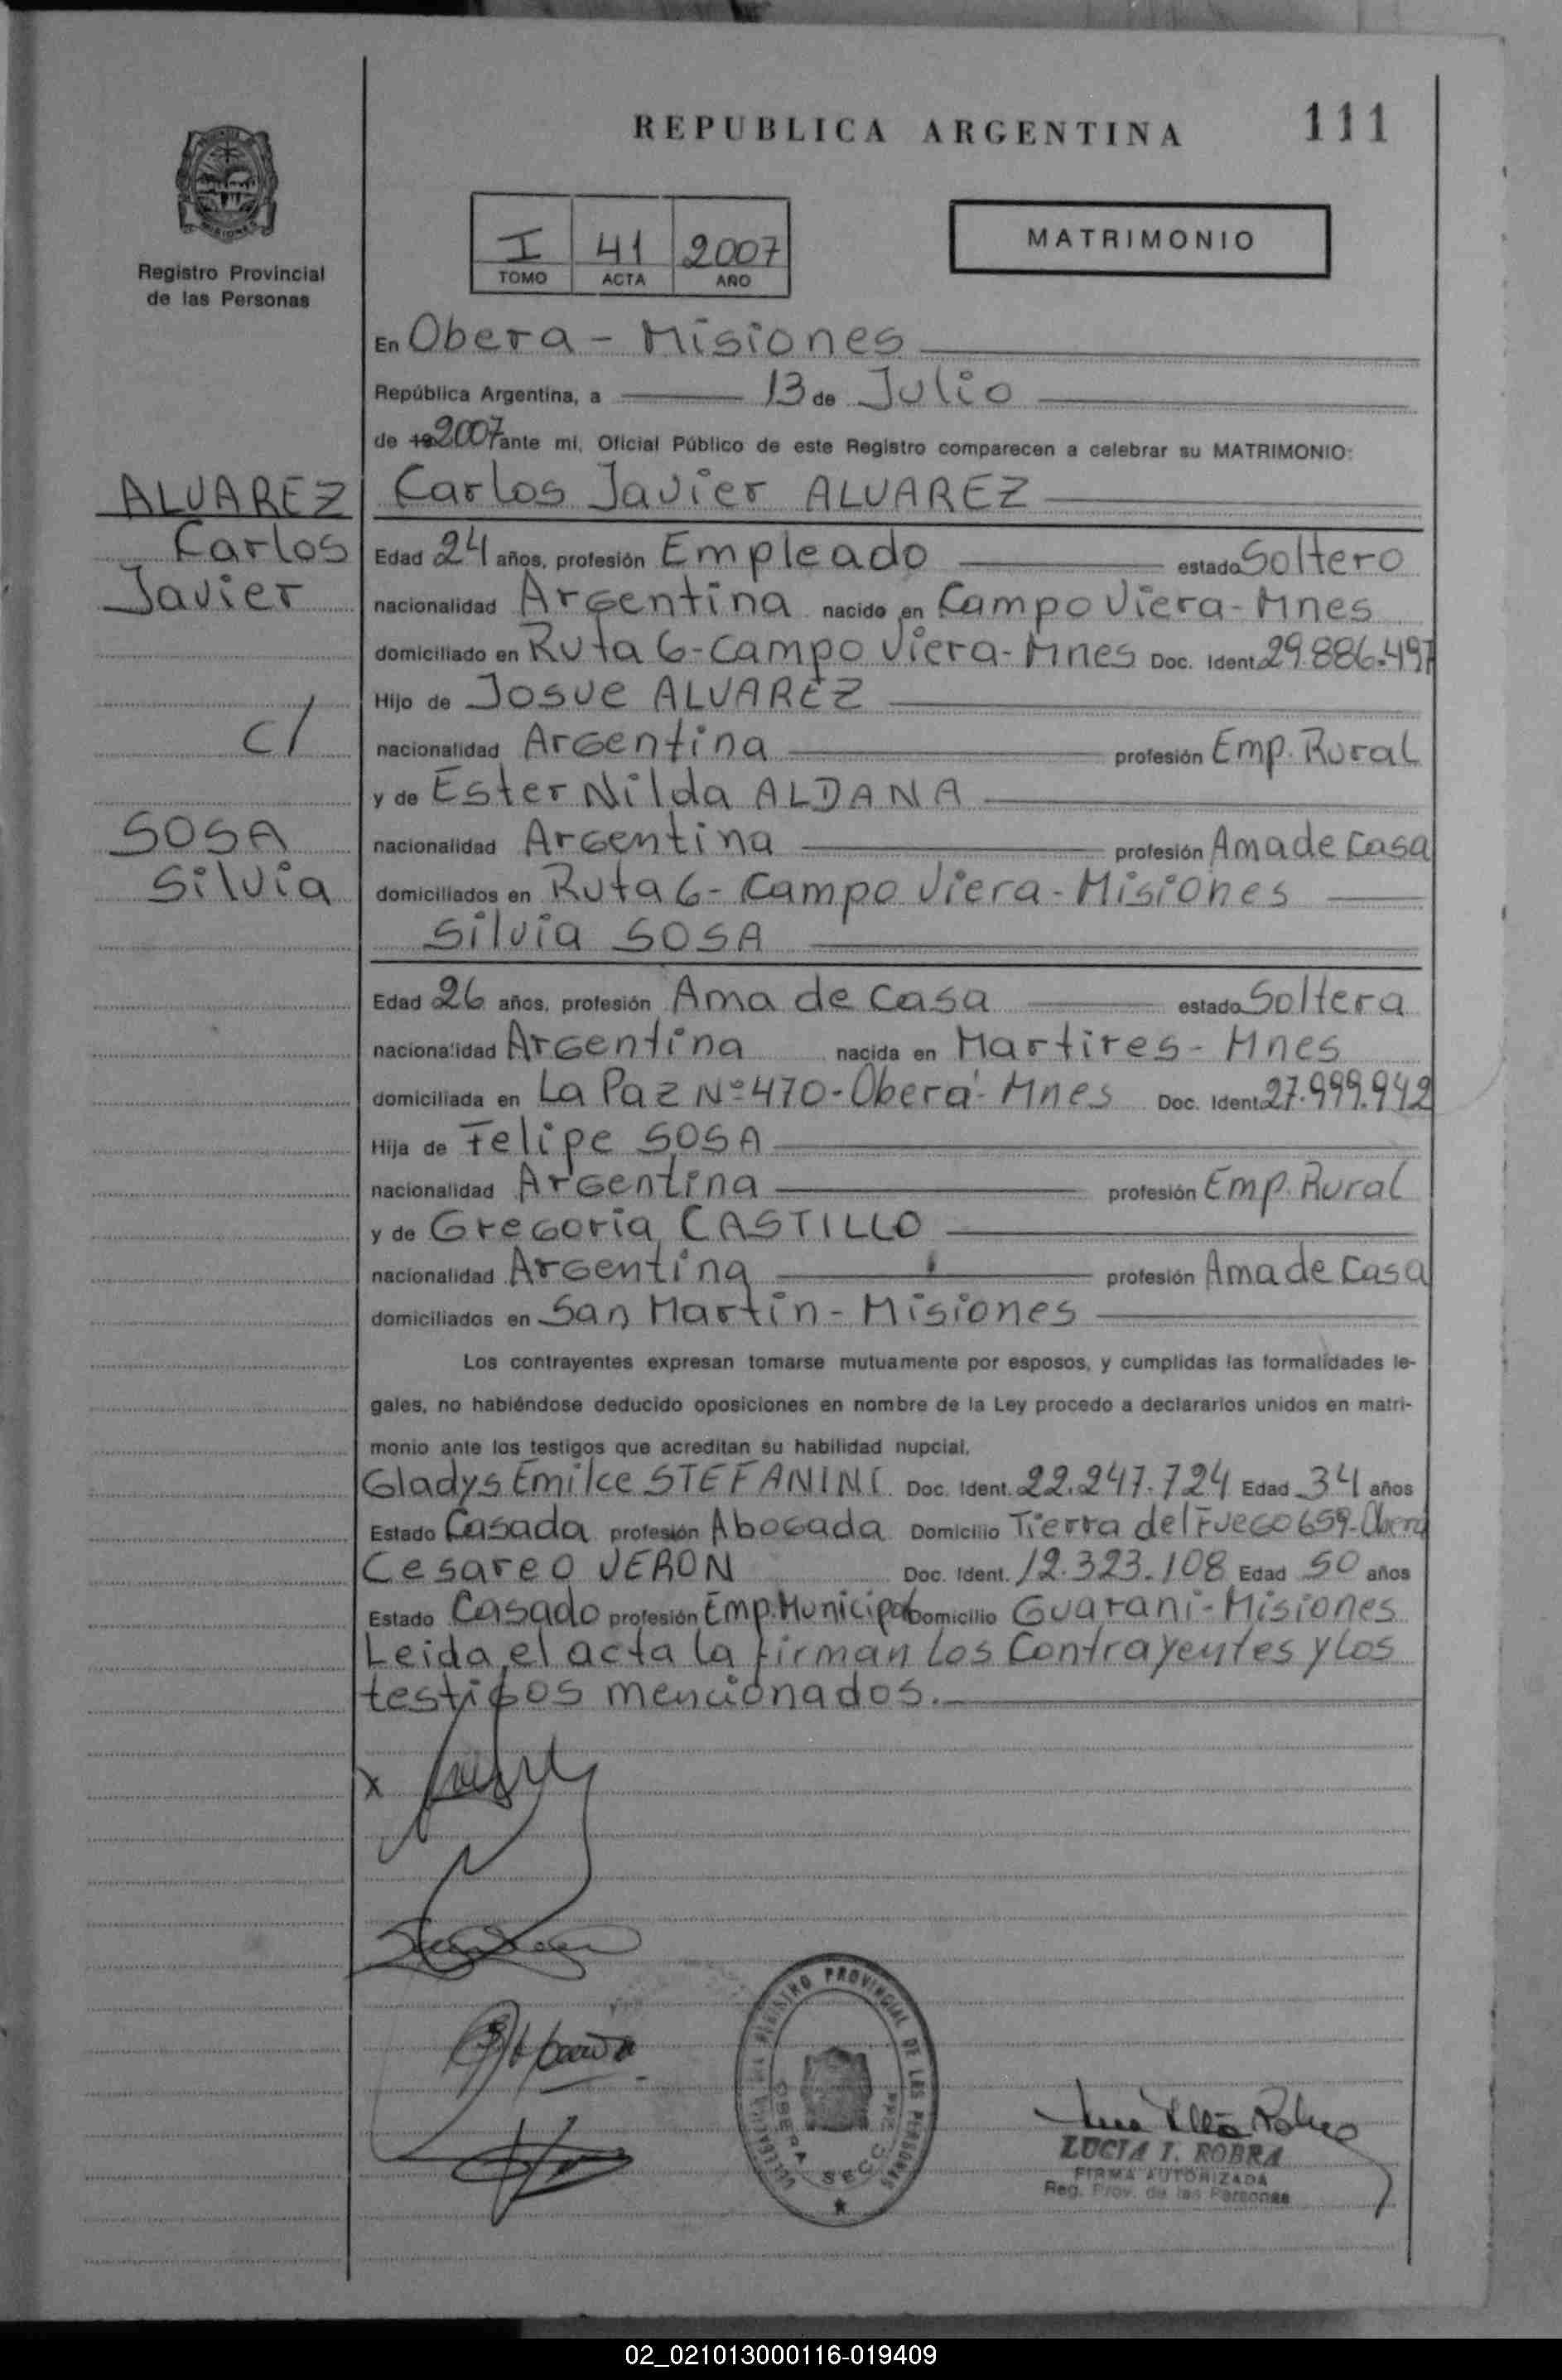 REPUBLICA ARGENTINA 111
Registro Provincial
de las Personas
I 41 2007
TOMO ACTA AÑO
MATRIMONIO
En Obera - Misiones
República Argentina, a 13 de Julio
de 19 2007 ante mi, Oficial Público de este Registro comparecen a celebrar su MATRIMONIO:
ALVAREZ
Carlos
Javier
c/
SOSA
Silvia
Carlos Javier ALVAREZ
Edad 24 años, profesión Empleado estado Soltero
nacionalidad Argentina nacido en Campo Viera - Mnes
domiciliado en Ruta 6 - Campo Viera - Mnes Doc. Ident. 29.886.497
Hijo de Josue ALVAREZ
nacionalidad Argentina profesión Emp. Rural
y de Ester Nilda ALDANA
nacionalidad Argentina profesión Ama de Casa
domiciliados en Ruta 6 - Campo Viera - Misiones
Silvia SOSA
Edad 26 años, profesión Ama de Casa estado Soltera
nacionalidad Argentina nacida en Martires - Mnes
domiciliada en La Paz Nº 470 - Oberá - Mnes Doc. Ident. 27.999.942
Hija de Felipe SOSA
nacionalidad Argentina profesión Emp. Rural
y de Gregoria CASTILLO
nacionalidad Argentina profesión Ama de Casa
domiciliados en San Martin - Misiones
Los contrayentes expresan tomarse mutuamente por esposos, y cumplidas las formalidades le-
gales, no habiéndose deducido oposiciones en nombre de la Ley procedo a declararlos unidos en matri-
monio ante los testigos que acreditan su habilidad nupcial.
Gladys Emilce STEFANINI Doc. Ident. 22.247.724 Edad 34 años
Estado Casada profesión Abogada Domicilio Tierra del Fuego 659 - Oberá
Cesareo VERON Doc. Ident. 12.323.108 Edad 50 años
Estado Casado profesión Emp. Municipal Domicilio Guarani - Misiones
Leida el acta la firman los Contrayentes y los
testigos mencionados.
X
REGISTRO PROVINCIAL DE LAS PERSONAS
OBERA SECC
LUCIA I. ROBRA
FIRMA AUTORIZADA
Reg. Prov. de las Personas
02_021013000116-019409